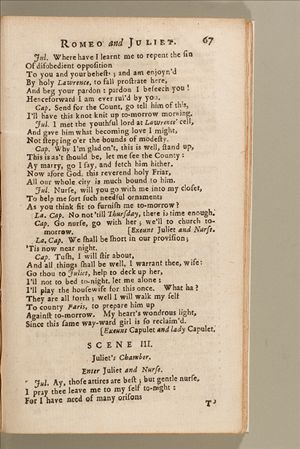 ROMEO and JULIET. 67
Jul. Where have I learnt me to repent the ſin
Of diſobedient oppoſition
To you and your beheſts; and am enjoyn'd
By holy Lawrence, to fall proſtrate here,
And beg your pardon: pardon I beſeech you!
Henceforward I am ever rul'd by you.
Cap. Send for the Count, go tell him of this,
I'll have this knot knit up to-morrow morning.
Jul. I met the youthful lord at Lawrence' cell,
And gave him what becoming love I might,
Not ſtepping o'er the bounds of modeſty.
Cap. Why I'm glad on't, this is well, ſtand up,
This is as't ſhould be, let me ſee the County:
Ay marry, go I ſay, and fetch him hither.
Now afore God, this reverend holy Friar,
All our whole city is much bound to him.
Jul. Nurſe, will you go with me into my cloſet,
To help me ſort ſuch needful ornaments
As you think fit to furniſh me to-morrow?
La. Cap. No not 'till Thurſday, there is time enough.
Cap. Go nurſe, go with her; we'll to church to-
morrow. [Exeunt Juliet and Nurſe.
La. Cap. We ſhall be ſhort in our proviſion;
'Tis now near night.
Cap. Tuſh, I will ſtir about,
And all things ſhall be well, I warrant thee, wife:
Go thou to Juliet, help to deck up her,
I'll not to bed to-night, let me alone:
I'll play the houſewife for this once. What ha?
They are all forth; well I will walk my ſelf
To county Paris, to prepare him up
Againſt to-morrow. My heart's wondrous light,
Since this ſame way-ward girl is ſo reclaim'd.
[Exeunt Capulet and lady Capulet.
SCENE III.
Juliet's Chamber.
Enter Juliet and Nurſe.
Jul. Ay, thoſe attires are beſt; but gentle nurſe,
I pray thee leave me to my ſelf to-night:
For I have need of many oriſons
T'